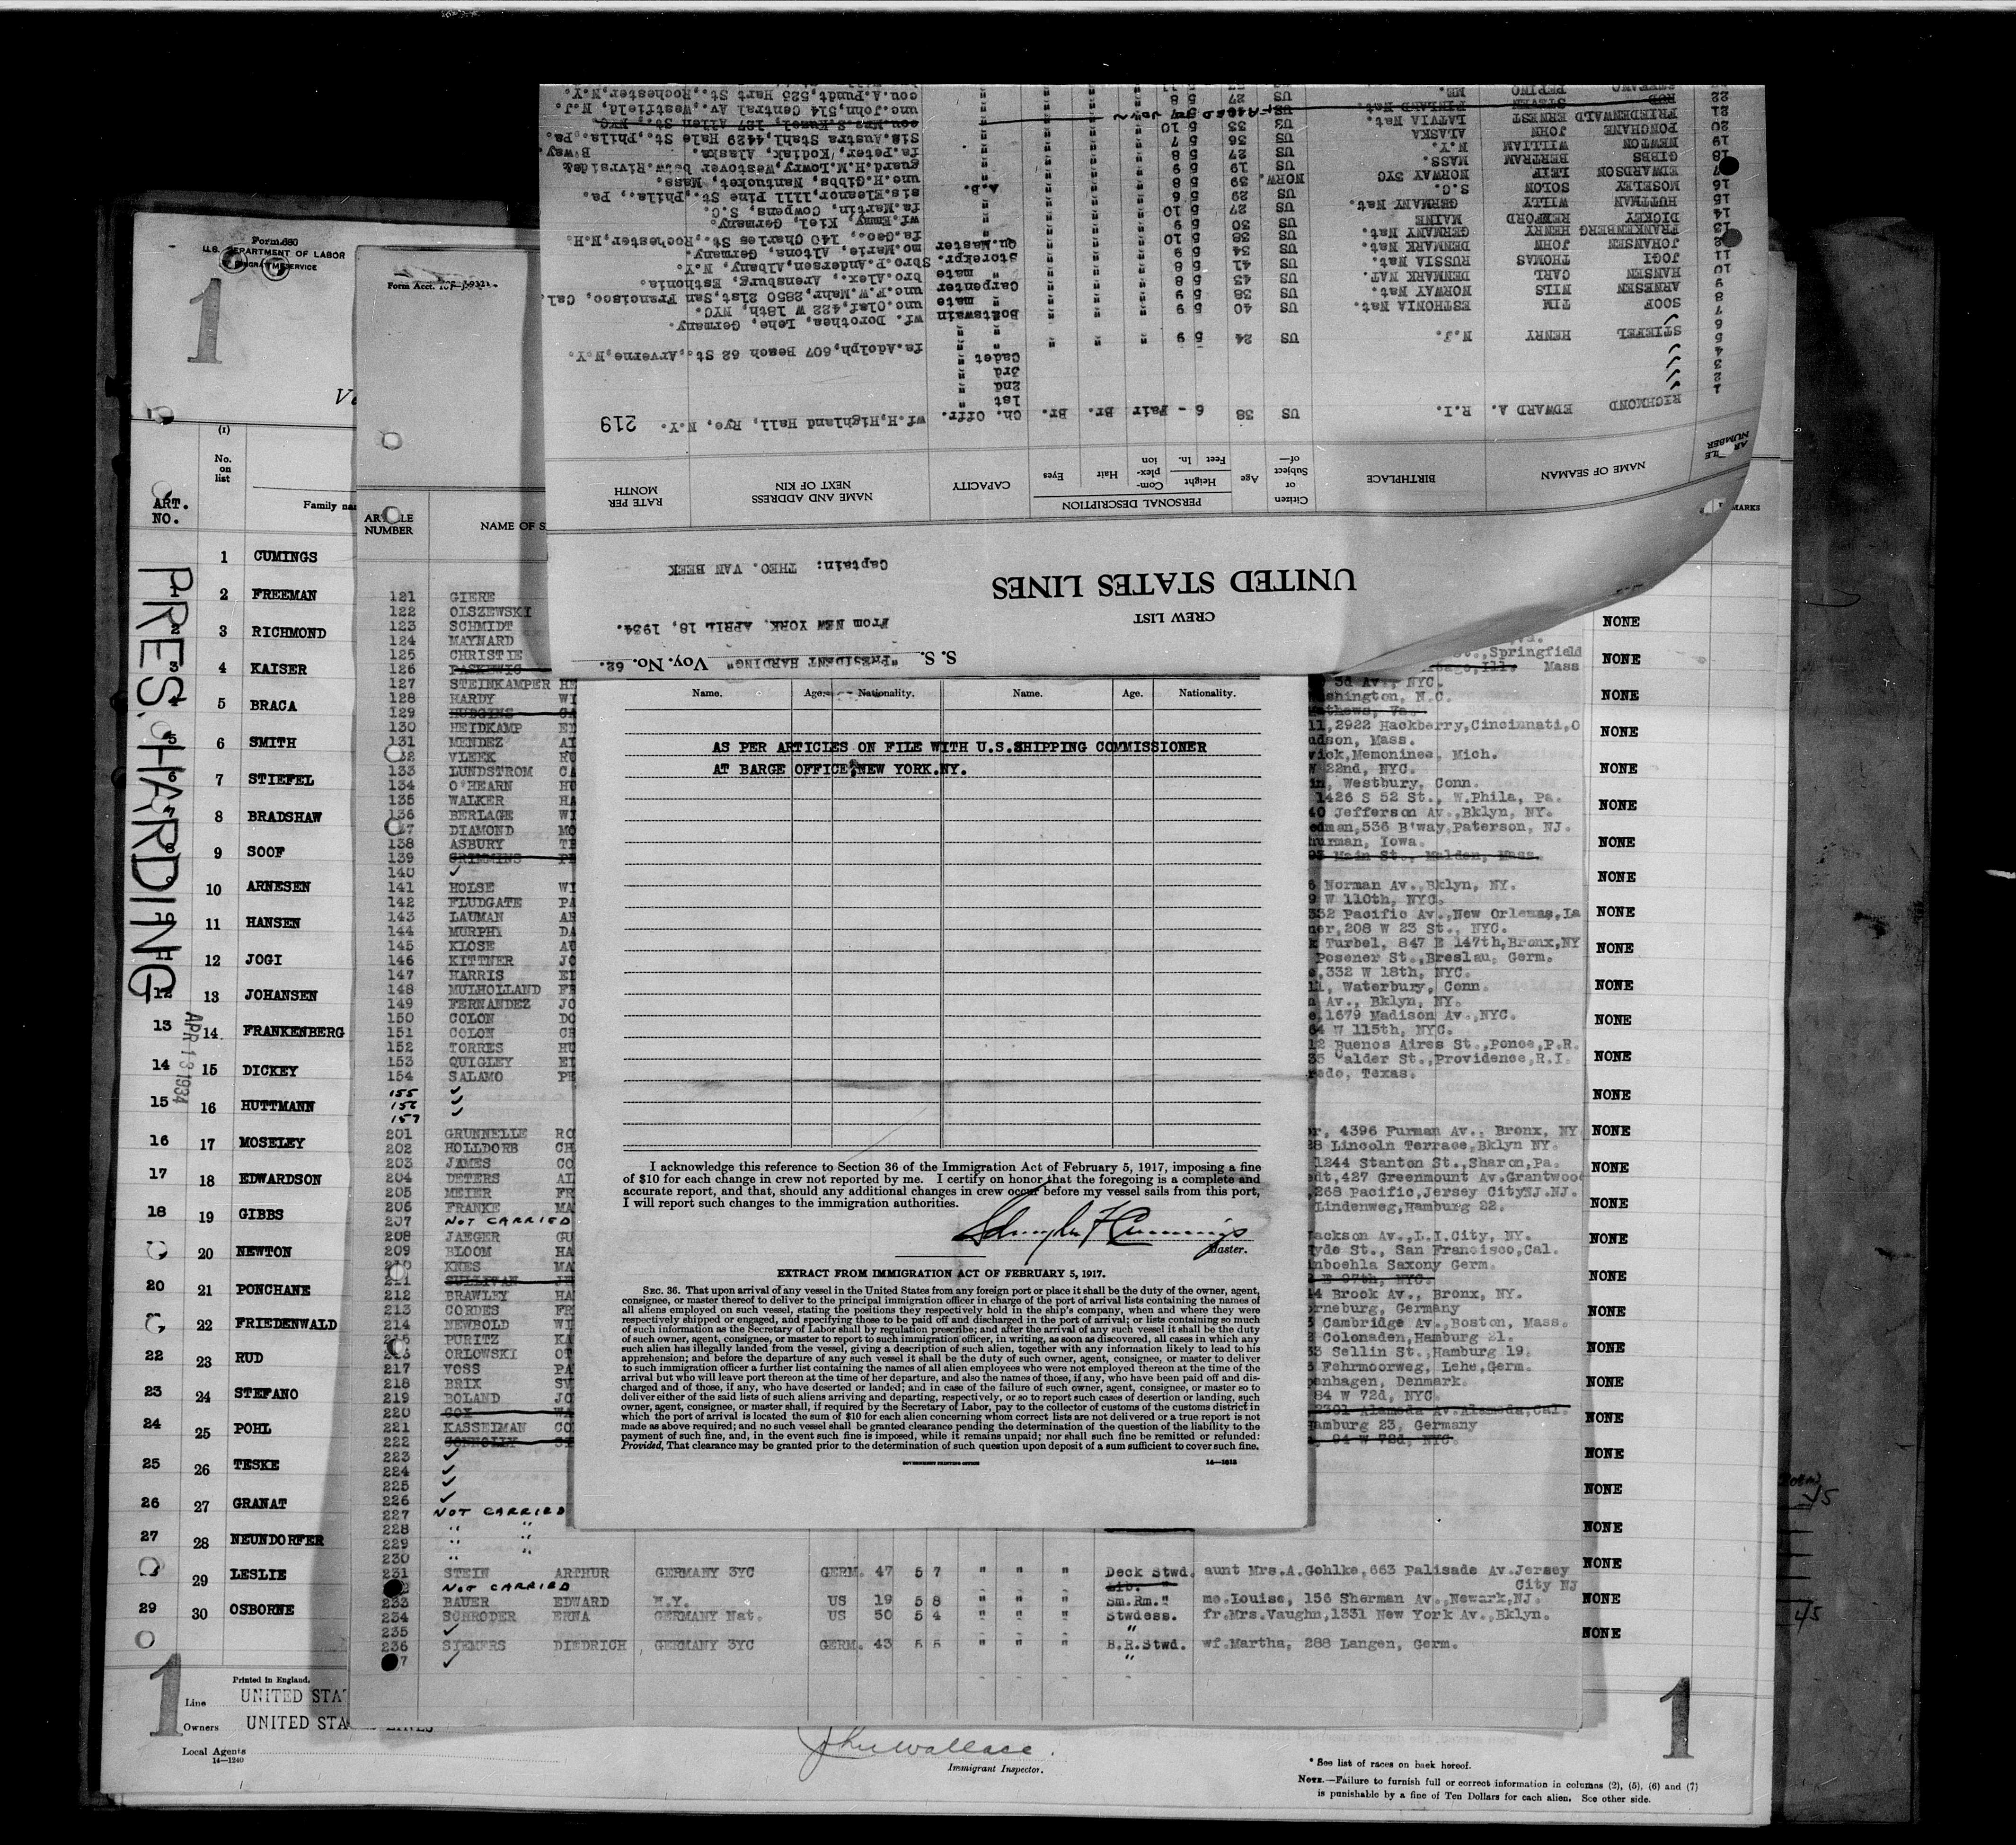 Form 680
U.S. DEPARTMENT OF LABOR
IMMIGRATION SERVICE
1
(1)
No.
on
list
ART.
NO.
Family
PRES. HARDING
APR 13 1934
1 CUMINGS
2 FREEMAN
3 RICHMOND
4 KAISER
5 BRACA
6 SMITH
7 STIEFEL
8 BRADSHAW
9 SOOF
10 ARNESEN
11 HANSEN
12 JOGI
12 13 JOHANSEN
13 14 FRANKENBERG
14 15 DICKEY
15 16 HUTTMANN
16 17 MOSELEY
17 18 EDWARDSON
18 19 GIBBS
20 NEWTON
20 21 PONCHANE
22 FRIEDENWALD
22 23 RUD
23 24 STEFANO
24 25 POHL
25 26 TESKE
26 27 GRANAT
27 28 NEUNDORFER
29 LESLIE
29 30 OSBORNE
1
Printed in England.
Line UNITED STA
Owners UNITED STA LINES
Local Agents
14—1240
John Wallace.
Immigrant Inspector.
* See list of races on back hereof.
NOTE.—Failure to furnish full or correct information in columns (2), (5), (6) and (7)
is punishable by a fine of Ten Dollars for each alien. See other side.
1
S. S. "PRESIDENT HARDING" Voy. No. 62.
CREW LIST From NEW YORK. APRIL 18, 1934.
UNITED STATES LINES
Captain: THEO. VAN BEEK
NAME OF SEAMAN BIRTHPLACE Citizen or Subject of— Age PERSONAL DESCRIPTION Height Feet In. Complexion Hair Eyes CAPACITY NAME AND ADDRESS NEXT OF KIN RATE PER MONTH
1 RICHMOND EDWARD A. R.I. US 38 6 - Fair Br. Br. Ch. Offr. wf.H,Highland Hall, Rye, N.Y. 219
2 ✓ 1st "
3 ✓ 2nd "
4 ✓ 3rd "
5 STIEFEL HENRY N.J. US 24 5 9 " " " Cadet fa.Adolph,607 Beach 62 St.,Arverne,N.Y.
6 ✓ "
7 SOOF TIM ESTHONIA Nat. US 40 5 9 " " " Boatswain wf. Dorothea, Lehe, Germany.
8 ARNESEN NILS NORWAY Nat. US 38 5 9 " " " " mate unc.Olaf,422 W 18th, NYC.
9 HANSEN CARL DENMARK NAT. US 43 5 8 " " " Carpenter unc.F.W.Mahr,2850 21st,San Francisco, Cal.
10 JOGI THOMAS RUSSIA Nat. US 41 5 8 " " " " mate bro.Alex. Arensburg, Esthonia.
11 JOHANSEN JOHN DENMARK Nat. US 34 5 9 " " " Storekpr. Sbro P.Andersen,Albany, N.Y.
FRANKENBERG HENRY GERMANY Nat. US 38 5 10 " " " Qu.Master mo.Marie, Altona, Germany.
DICKEY REXFORD MAINE US 30 5 9 " " " fa.Geo., 140 Charles St.,Rochester,N.H.
14 HUTTMAN WILLY GERMANY Nat. US 27 5 10 " " " wf.Emmy, Kiel, Germany.
15 MOSELEY SOLON S.C. US 29 5 6 " " " fa.Martin, Cowpens, S.C.
16 EDWARDSON LEIF NORWAY 3YC NORW. 39 5 8 " " " A.B. sis.Eleanor,1111 Pine St.,Phila., Pa.
GIBBS BERTRAM MASS. US 19 5 9 " " " unc.H.Gibbs, Nantucket, Mass.
18 NEWTON WILLIAM N.Y. US 27 5 8 " " " guard.H.M.Lowry,Westover betw.Rivrsid& B'way.
19 PONCHANE JOHN ALASKA US 36 5 7 " " " fa.Peter, Kodiak, Alaska.
20 FRIEDENWALD ERNEST LATVIA Nat. US 33 5 10 " " " sis.Austra Stahl,4429 Hale St., Phila. Pa.
21 RUD STEVEN FINLAND Nat. US cou.Mrs.S.Kunel, 127 Allen St., NYC
FAILED TO JOIN
22 STEFANO PEPPINO ME. US 27 5 8 " unc.John,514 Central Av.,Westfield, N.J.
cou.A.Pundt,525 Hart St.,Rochester,N.Y.
Form Acct.
ARTICLE
NUMBER
NAME OF S
MARKS
121 GIERE
122 OLSZEWSKI
123 SCHMIDT
124 MAYNARD
125 CHRISTIE St.,Springfield
126 PASKEWIG Ill. Mass
127 STEINKAMPER HE 3d Av., NYC.
128 HARDY WI shington, N.C.
129 HUDGINS thews, Va.
130 HEIDKAMP 11,2922 Hackberry,Cincinnati,O
131 MENDEZ AL udson, Mass.
132 VLEEK RU wick,Memoninee, Mich.
133 LUNDSTROM CA W 22nd, NYC.
134 O'HEARN HU in, Westbury, Conn.
135 WALKER HA 1426 S 52 St., W.Phila, Pa.
136 BERLAGE WI 40 Jefferson Av.,Bklyn, NY.
137 DIAMOND MO edman,536 B'way,Paterson, NJ.
138 ASBURY TE hurman, Iowa.
139 CRIMMINS Main St., Malden, Mass.
140 ✓
141 HOLSE WI 6 Norman Av., Bklyn, NY.
142 FLUDGATE PA 9 W 110th, NYC.
143 LAUMAN AR 332 Pacific Av.,New Orleans,La
144 MURPHY DA ner,208 W 23 St., NYC.
145 KLOSE AU k Turbel, 847 E 147th,Bronx,NY
146 KITTNER JO Posener St.,Breslau, Germ.
147 HARRIS e,332 W 18th, NYC.
148 MULHOLLAND FR 11, Waterbury, Conn.
149 FERNANDEZ JO n Av., Bklyn, NY.
150 COLON DO e,1679 Madison Av.,NYC.
151 COLON CE 64 W 115th, NYC.
152 TORRES HU 12 Buenos Aires St.,Ponce,P.R.
153 QUIGLEY 35 Calder St.,Providence,R.I.
154 SALAMO PE redo, Texas.
155 ✓
156 ✓
157 ✓
201 GRUNNELLE RO r, 4396 Furman Av., Bronx, NY
202 HOLLDORB CH 28 Lincoln Terrace,Bklyn NY.
203 JAMES CO 1244 Stanton St.,Sharon,Pa.
204 DETERS AL edt,427 Greenmount Av.Grantwood
205 MEIER FR ,268 Pacific,Jersey CityNJ.NJ.
206 FRANKE MA Lindenweg,Hamburg 22.
207 NOT CARRIED
208 JAEGER GU Jackson Av.,L.I.City, NY.
209 BLOOM HA Hyde St., San Francisco,Cal.
210 KNES MA nboehla Saxony Germ.
211 SULLIVAN E 97th, NYC.
212 BRAWLEY HA 44 Brook Av., Bronx, NY.
213 CORDES FR orneburg, Germany
214 NEWBOLD WI 3 Cambridge Av.,Boston, Mass.
215 PURITZ KA 2 Colonaden,Hamburg 21.
216 ORLOWSKI OT 33 Sellin St.,Hamburg 19.
217 VOSS PA 6 Fehrmoorweg, Lehe,Germ.
218 BRIX SV penhagen, Denmark.
219 BOLAND JO 84 W 72d, NYC.
220 COX WA 2301 Alameda Av.Alameda,Cal.
221 KASSELMAN CO Hamburg 23, Germany
222 CONNOLLY 94 W 72d, NYC.
223 ✓
224 ✓
225 ✓
226 ✓
227 NOT CARRIED
228 " "
229 " "
230 " "
231 STEIN ARTHUR GERMANY 3YC GERM. 47 5 7 " " " Deck Stwd. aunt Mrs.A.Gohlke,663 Palisade Av.Jersey City NJ
NOT CARRIED Lib. "
233 BAUER EDWARD N.Y. US 19 5 8 " " " Sm.Rm." mo.Louise, 156 Sherman Av.,Newark,NJ.
234 SCHRODER ERNA GERMANY Nat. US 50 5 4 " " " Stwdess. fr.Mrs.Vaughn,1331 New York Av.,Bklyn.
235 ✓ "
236 SIEMERS DIEDRICH GERMANY 3YC GERM. 43 5 5 " " " B.R.Stwd. wf.Martha, 288 Langen, Germ.
7 ✓ "
Name. Age. Nationality. Name. Age. Nationality.
AS PER ARTICLES ON FILE WITH U.S.SHIPPING COMMISSIONER
AT BARGE OFFICE,NEW YORK.NY.
I acknowledge this reference to Section 36 of the Immigration Act of February 5, 1917, imposing a fine
of $10 for each change in crew not reported by me. I certify on honor that the foregoing is a complete and
accurate report, and that, should any additional changes in crew occur before my vessel sails from this port,
I will report such changes to the immigration authorities.
Master.
EXTRACT FROM IMMIGRATION ACT OF FEBRUARY 5, 1917.
SEC. 36. That upon arrival of any vessel in the United States from any foreign port or place it shall be the duty of the owner, agent,
consignee, or master thereof to deliver to the principal immigration officer in charge of the port of arrival lists containing the names of
all aliens employed on such vessel, stating the positions they respectively hold in the ship's company, when and where they were
respectively shipped or engaged, and specifying those to be paid off and discharged in the port of arrival; or lists containing so much
of such information as the Secretary of Labor shall by regulation prescribe; and after the arrival of any such vessel it shall be the duty
of such owner, agent, consignee, or master to report to such immigration officer, in writing, as soon as discovered, all cases in which any
such alien has illegally landed from the vessel, giving a description of such alien, together with any information likely to lead to his
apprehension; and before the departure of any such vessel it shall be the duty of such owner, agent, consignee, or master to deliver
to such immigration officer a further list containing the names of all alien employees who were not employed thereon at the time of the
arrival but who will leave port thereon at the time of her departure, and also the names of those, if any, who have been paid off and dis-
charged and of those, if any, who have deserted or landed; and in case of the failure of such owner, agent, consignee, or master so to
deliver either of the said lists of such aliens arriving and departing, respectively, or so to report such cases of desertion or landing, such
owner, agent, consignee, or master shall, if required by the Secretary of Labor, pay to the collector of customs of the customs district in
which the port of arrival is located the sum of $10 for each alien concerning whom correct lists are not delivered or a true report is not
made as above required; and no such vessel shall be granted clearance pending the determination of the question of the liability to the
payment of such fine, and, in the event such fine is imposed, while it remains unpaid; nor shall such fine be remitted or refunded:
Provided, That clearance may be granted prior to the determination of such question upon deposit of a sum sufficient to cover such fine.
GOVERNMENT PRINTING OFFICE 14—1240
NONE
NONE
NONE
NONE
NONE
NONE
NONE
NONE
NONE
NONE
NONE
NONE
NONE
NONE
NONE
NONE
NONE
NONE
NONE
NONE
NONE
NONE
NONE
NONE
NONE
NONE
NONE
NONE
NONE
45
45